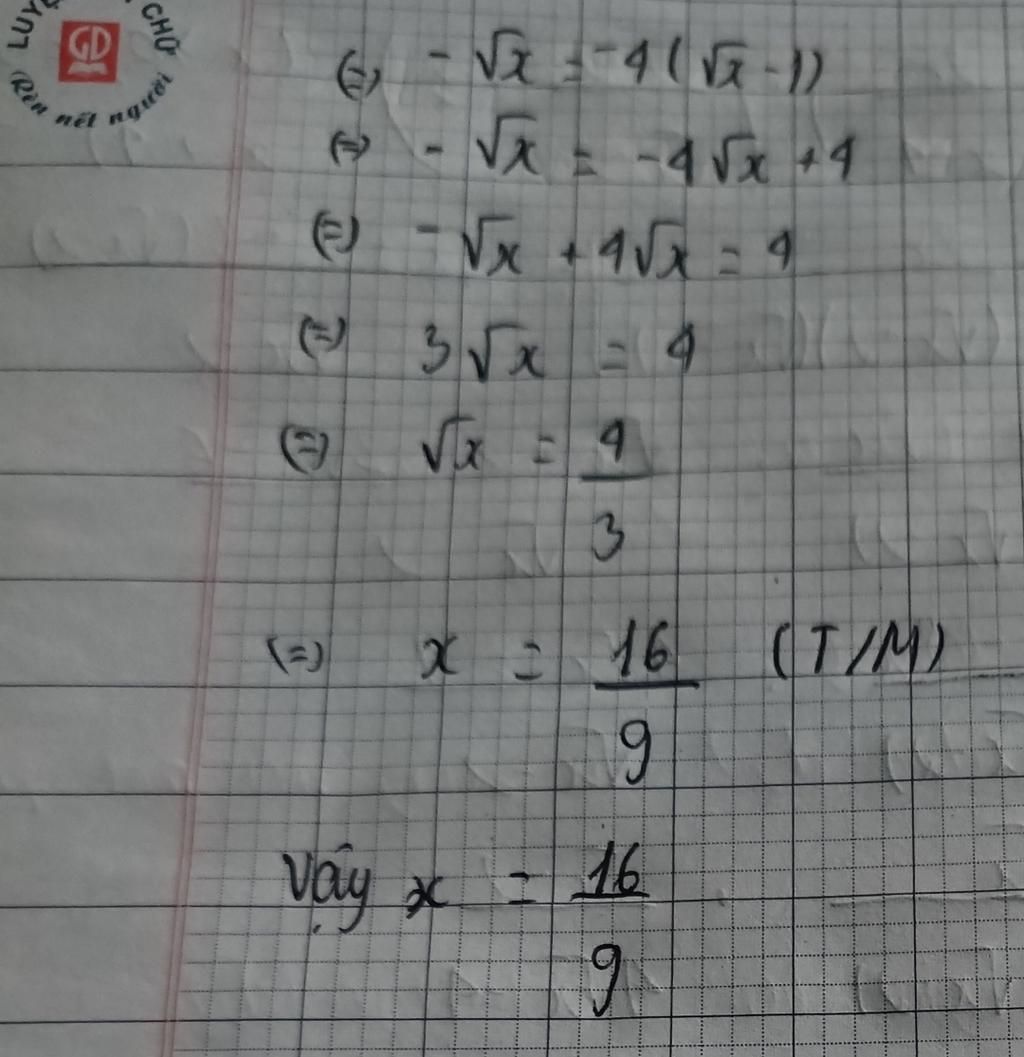 LUYỆ CHỮ
GD
Rèn nết người
(=) - √x = -4(√x - 1)
(=) - √x = -4√x + 4
(=) -√x + 4√x = 4
(=) 3√x = 4
(=) √x = 4/3
(=) x = 16/9 (T/M)
Vậy x = 16/9